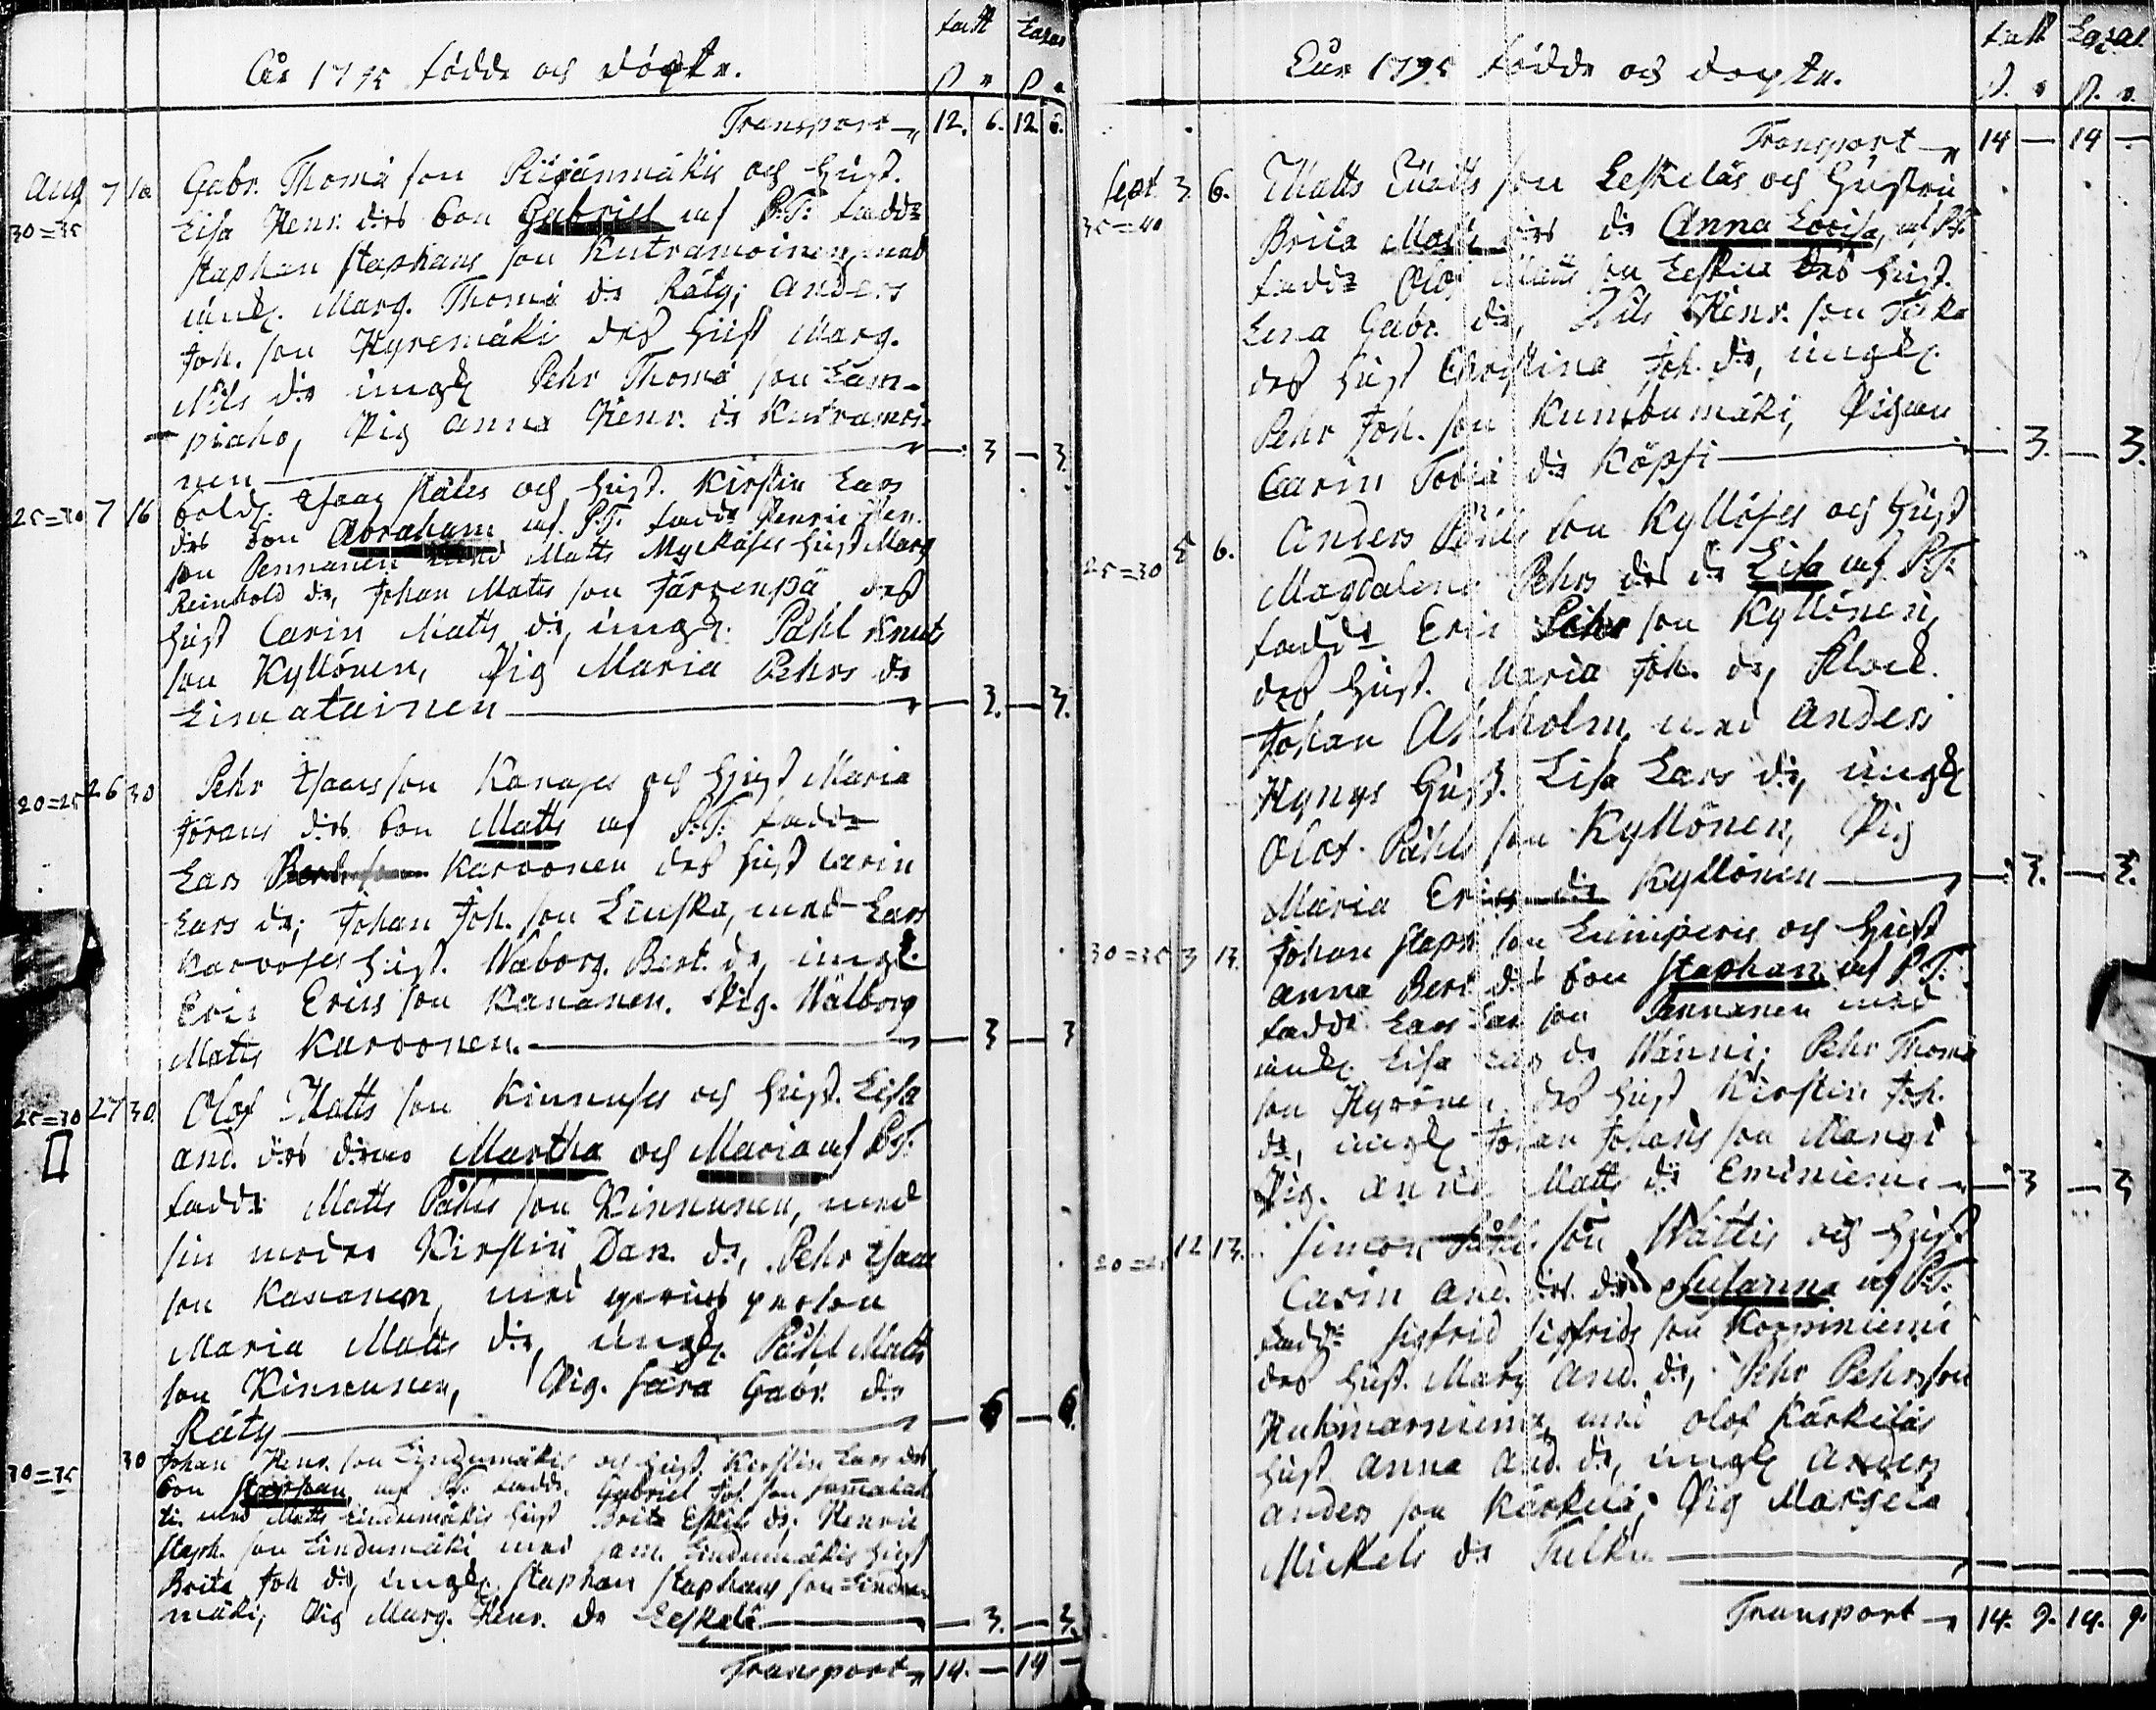 fatt Lazar
År 1795 födde och döpte.
Transport 12. 6. 12. 6.
Aug 7 10 Gabr. Thomæ son och hust.
30=35 Lisa Henr. d:rs son Gabriel af P.T. fadd:r
Staphan Staphans son Kutramoinen, med
Marg. Thomæ d:r Räty; Anders
Joh. son Hyremäki des hust Marg.
Nils d:r ungk Pehr Thomæ son Lam-
piaho, Pig Anna Henr. d:r Kutramoi-
nen 3 3
25=30 7 16 Isaac och hust. Kirstin Lars
d:rs son Abraham af P.T. fadd:r Henric
son Pennanen med Matts Myckäses hust Marg
Reinhold d:r, Johan Matts son Järvenpä des
hust Carin Matts d:r, ungk: Påhl Knut
son Kyllönen, Pig Maria Pehrs d:r
Limatainen 3. 3.
20=25 26 30 Pehr Isaacs son Kanases och hust Maria
Jörans d:rs son Matts af P.T. fadd:r
Lars Karvonen des hust Carin
Lars d:r; Johan Joh. son Linska, med Lars
Karvoses hust. Waborg. Bert. d:r, ungk.
Eric Erics son Kananen. Pig. Wålborg
Matts Karvonen. 3 3
25=30 27 30. Olof Matts son Kinnuses och hust. Lisa
And. d:rs Martha och Maria af P.T.
fadd:r Matts Påhls son Kinnunen, med
sin moder Kirstin Dan. d:r, Pehr Isaac
son Kananen, med person
Maria Matts d:r, ungk. Påhl Matts
son Kinnunen, Pig. Sara Gabr. d:r
Räty 6 6.
30=35 30 Johan Henr. son Lindumäkis och hust Kirstin Lars d:rs
son Staphan af P.T. fadd:r Gabriel Joh. son
med Matts Lindumäkis hust Brita Eskils d:r, Henric
Staph. son Lindumäki med Sam. Lindumäkis hust
Brita Joh d:r, ungk. Staphan Staphans son Lindu-
mäki, Pig Marg. Henr. d:r Leskelä 3. 3.
Transport 14. — 14 —
fatt Lazar
År 1795 födde och döpte.
Transport 14 — 14 —
Sept. 3 6. Matts Matts son Leskeläs och hustru
35=40 Brita Matts d:rs d:r Anna Lovisa, af P.T.
fadd:r Olof Matts son Leskelä des hust.
Lena Gabr. d:r, Nils Henr. son
des hust Christina Joh. d:r, ungk.
Pehr Joh. son Kumbumäki, Pigan
Carin Tobiæ d:r Köpsi 3. 3.
25=30 5 6. Anders Påhls son Kyllöses och hust
Magdalena Pehrs d:rs d:r Lisa af P.T.
fadd:r Eric Pehr son Kyllönen,
des hust. Maria Joh. d:r, Klock.
Johan Ahlholm, med Anders
Hynys hust. Lisa Lars d:r, ungk
Olof Påhls son Kyllönen, Pig
Maria Erics d:r Kyllönen 3. 3.
30=35 3 13. Johan Staph son Lumiperis och hust
Anna Bert d:rs son Staphan af P.T.
fadd:r Lars Lars son Pennanen med
Lisa Lars d:r Wänni; Pehr Thomæ
son Hyvönen, des hust Kirstin Joh.
d:r, ungk Johan Johans son Mangi
Pig. Anna Matts d:r Eminiemi 3 3
20=25 12 13. Simon Påhls son Wättis och hust
Carin And. d:rs d:r Susanna af P.T.
fadd:r Sigfrid Sigfrids son Korpiniemi
des hust. Marg And. d:r, Pehr Pehrs son
Huhmarniemi, med Olof Kärkiläs
hust Anna And. d:r, ungk Anders
Anders son Kärkilä, Pig Margeta
Mickels d:r Tulku
Transport 14. 9. 14. 9.